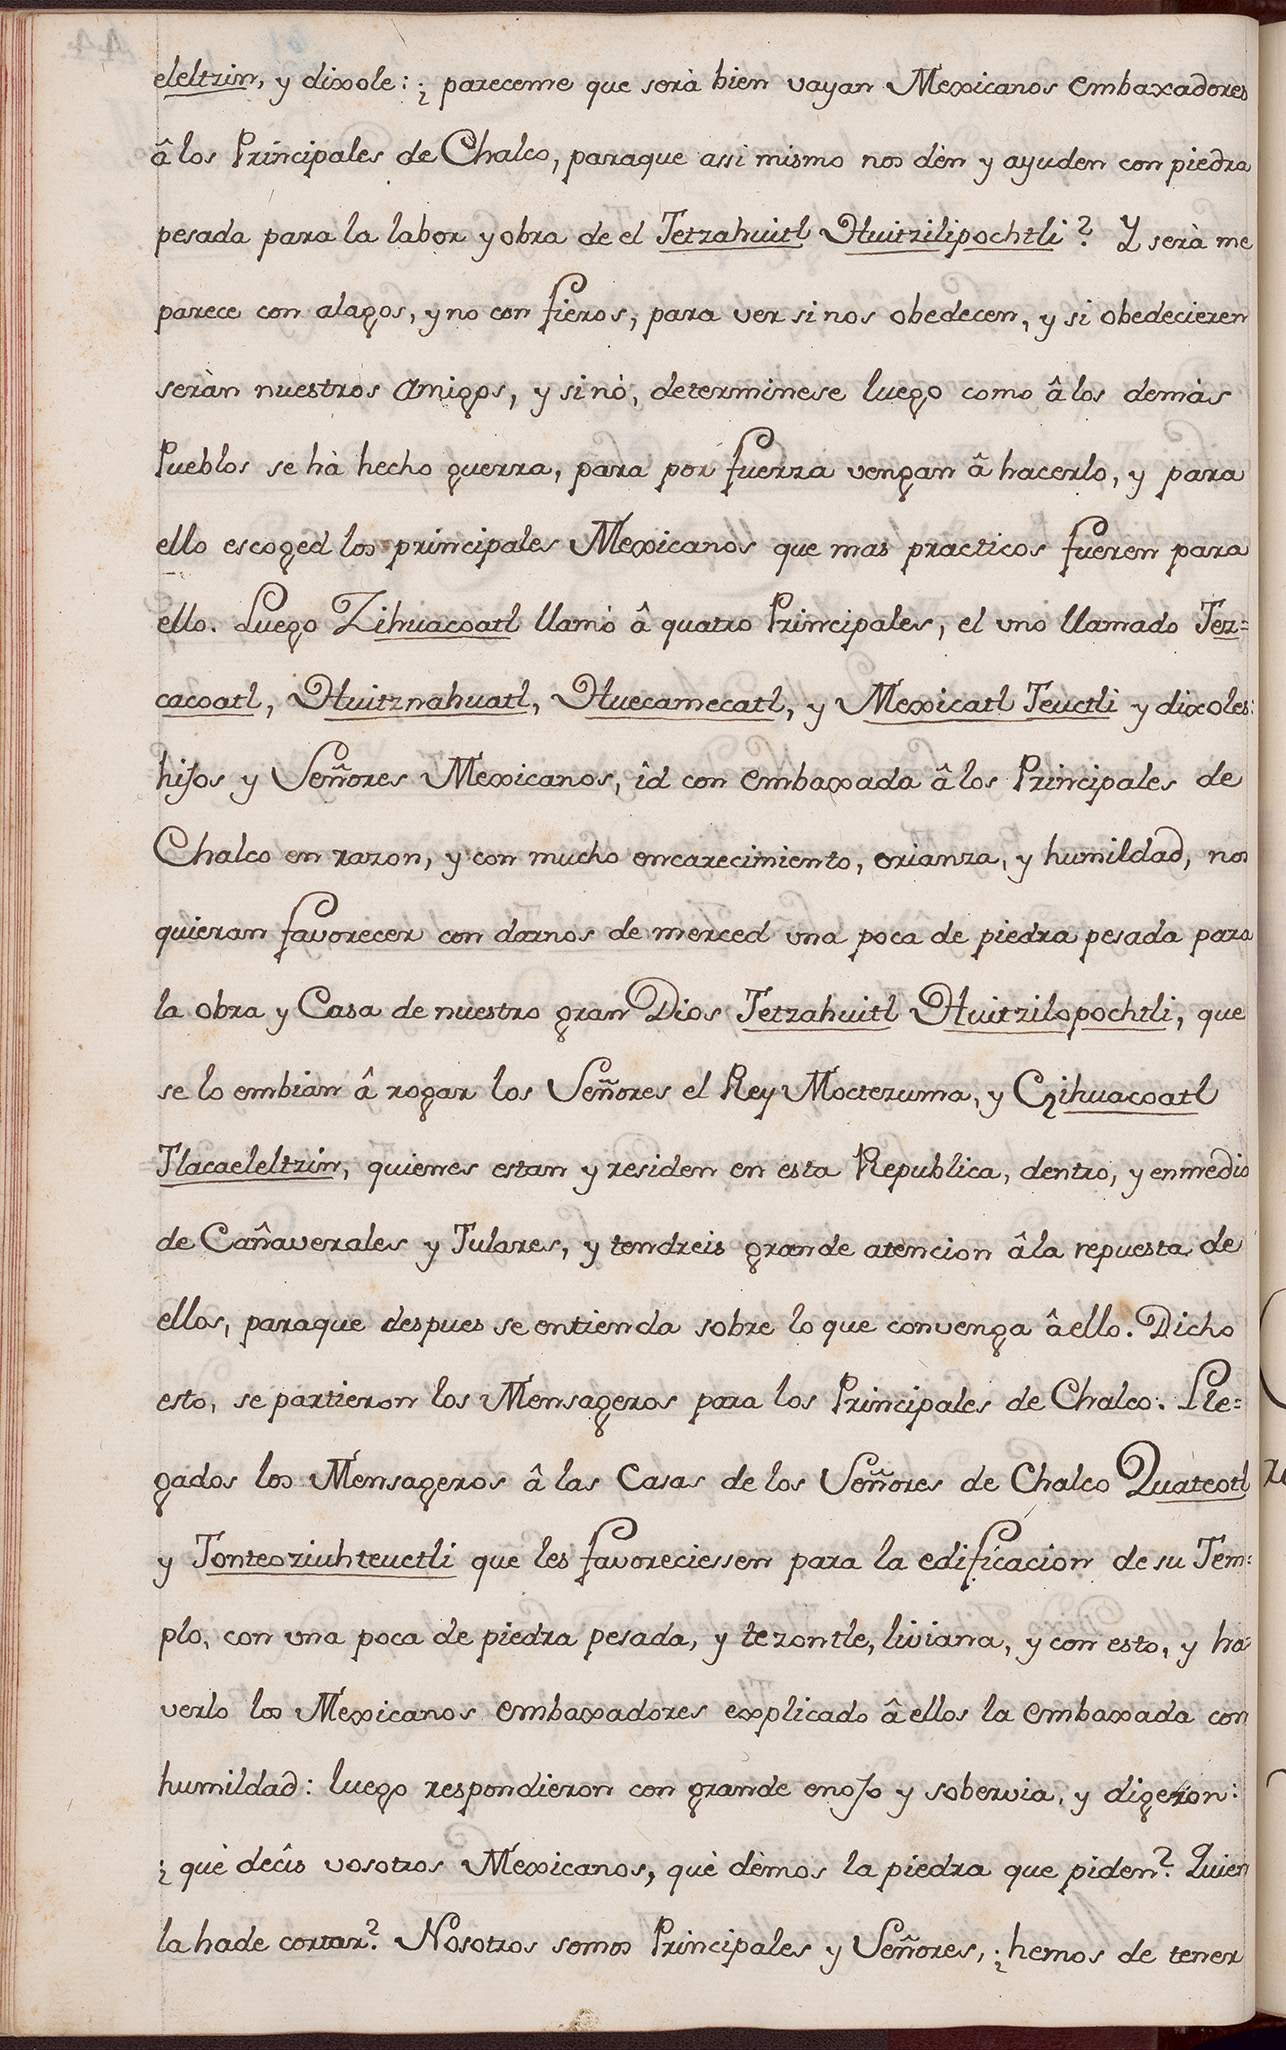 eleltzin, y dixole: ¿ pareceme que serà bien vayan Mexicanos embaxadores
â los Principales de Chalco, paraque assi mismo nos dèn y ayuden con piedra
pesada para la labor y obra de el Tetzahuitl Huitzilipochtli? Y serà me
parece con alagos, y no con fieros, para ver si nos obedecen, y si obedecieren
seràn nuestros amigos, y sinó, determinese luego como â los demàs
Pueblos se hà hecho guerra, para por fuerza vengan â hacerlo, y para
ello escoged los principales Mexicanos que mas practicos fueren para
ello. Luego Zihuacoatl llamò â quatro Principales, el uno llamado Tez=
cacoatl, Huitznahuatl, Huecamecatl, y Mexicatl Teuctli y dixoles:
hijos y Señores Mexicanos, îd con embaxada â los Principales de
Chalco en razon, y con mucho encarecimiento, crianza, y humildad, nos
quieran favorecer con darnos de merced una poca de piedra pesada para
la obra y Casa de nuestro gran Dios Tetzahuitl Huitzilopochtli, que
se lo embian â rogar los Señores el Rey Moctezuma, y Czihuacoatl
Tlacaeleltzin, quienes estan y residen en esta Republica, dentro, y enmedio
de Cañaverales y Tulares, y tendreis grande atencion âla repuesta de
ellos, paraque despues se entienda sobre lo que convenga âello. Dicho
esto, se partieron los Mensageros para los Principales de Chalco. Lle=
gados los Mensageros â las Casas de los Señores de Chalco Quateotl
y Tonteoziuhteuctli que les favoreciessen para la edificacion de su Tem=
plo, con una poca de piedra pesada, y tezontle, liviana, y con esto, y ha=
verlo los Mexicanos embaxadores explicado â ellos la embaxada con
humildad: luego respondieron con grande enojo y sobervia, y digeron:
¿ què decîs vosotros Mexicanos, què dèmos la piedra que piden? Quien
la hade cortar? Nosotros somos Principales y Señores, ¿hemos de tener